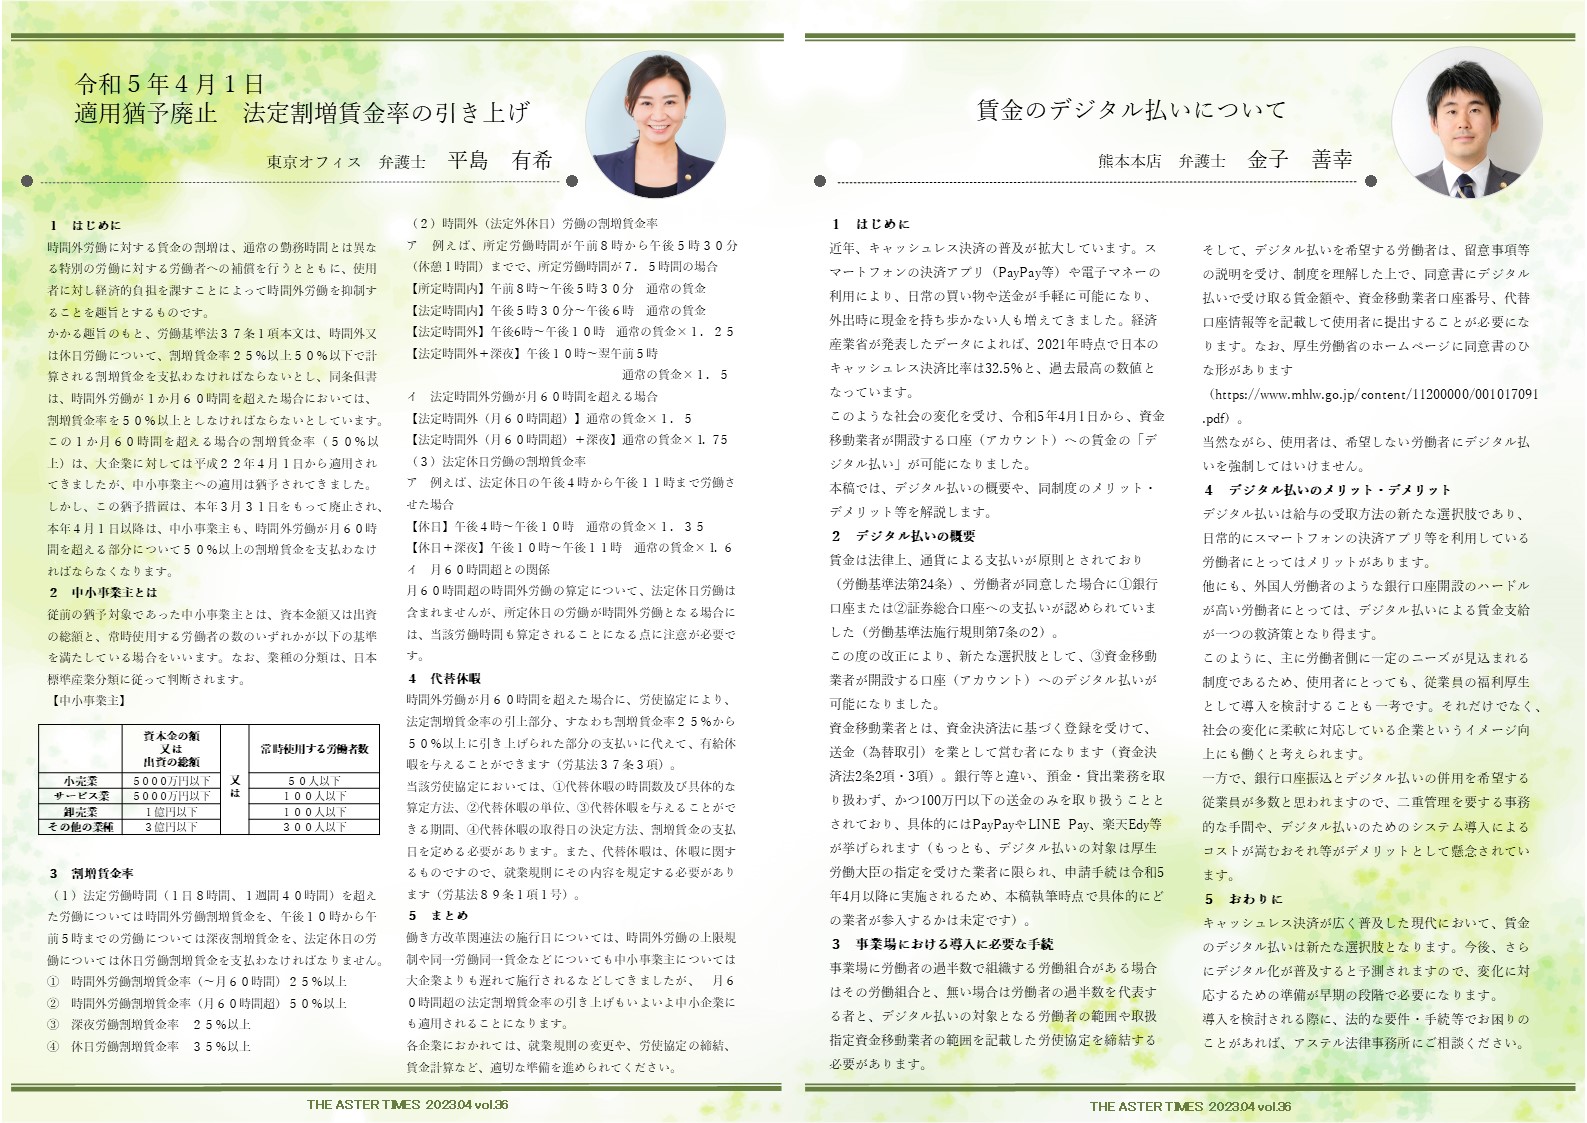 令和５年４月１日
適用猶予廃止　法定割増賃金率の引き上げ
東京オフィス　弁護士　平島　有希
１　はじめに
時間外労働に対する賃金の割増は、通常の勤務時間とは異な
る特別の労働に対する労働者への補償を行うとともに、使用
者に対し経済的負担を課すことによって時間外労働を抑制す
ることを趣旨とするものです。
かかる趣旨のもと、労働基準法３７条１項本文は、時間外又
は休日労働について、割増賃金率２５％以上５０％以下で計
算される割増賃金を支払わなければならないとし、同条但書
は、時間外労働が１か月６０時間を超えた場合においては、
割増賃金率を５０％以上としなければならないとしています。
この１か月６０時間を超える場合の割増賃金率（５０％以
上）は、大企業に対しては平成２２年４月１日から適用され
てきましたが、中小事業主への適用は猶予されてきました。
しかし、この猶予措置は、本年３月３１日をもって廃止され、
本年４月１日以降は、中小事業主も、時間外労働が月６０時
間を超える部分について５０％以上の割増賃金を支払わなけ
ればならなくなります。
２　中小事業主とは
従前の猶予対象であった中小事業主とは、資本金額又は出資
の総額と、常時使用する労働者の数のいずれかが以下の基準
を満たしている場合をいいます。なお、業種の分類は、日本
標準産業分類に従って判断されます。
【中小事業主】
資本金の額
又は
出資の総額
又は
常時使用する労働者数
小売業　５０００万円以下　５０人以下
サービス業　５０００万円以下　１００人以下
卸売業　１億円以下　１００人以下
その他の業種　３億円以下　３００人以下
３　割増賃金率
（１）法定労働時間（１日８時間、１週間４０時間）を超え
た労働については時間外労働割増賃金を、午後１０時から午
前５時までの労働については深夜割増賃金を、法定休日の労
働については休日労働割増賃金を支払わなければなりません。
①　時間外労働割増賃金率（～月６０時間）２５％以上
②　時間外労働割増賃金率（月６０時間超）５０％以上
③　深夜労働割増賃金率　２５％以上
④　休日労働割増賃金率　３５％以上
（２）時間外（法定外休日）労働の割増賃金率
ア　例えば、所定労働時間が午前８時から午後５時３０分
（休憩１時間）までで、所定労働時間が７．５時間の場合
【所定時間内】午前８時～午後５時３０分　通常の賃金
【法定時間内】午後５時３０分～午後６時　通常の賃金
【法定時間外】午後6時～午後１０時　通常の賃金×１．２５
【法定時間外＋深夜】午後１０時～翌午前５時
通常の賃金×１．５
イ　法定時間外労働が月６０時間を超える場合
【法定時間外（月６０時間超）】通常の賃金×１．５
【法定時間外（月６０時間超）＋深夜】通常の賃金×1.75
（３）法定休日労働の割増賃金率
ア　例えば、法定休日の午後４時から午後１１時まで労働さ
せた場合
【休日】午後４時～午後１０時　通常の賃金×１．３５
【休日＋深夜】午後１０時～午後１１時　通常の賃金×1.6
イ　月６０時間超との関係
月６０時間超の時間外労働の算定について、法定休日労働は
含まれませんが、所定休日の労働が時間外労働となる場合に
は、当該労働時間も算定されることになる点に注意が必要で
す。
４　代替休暇
時間外労働が月６０時間を超えた場合に、労使協定により、
法定割増賃金率の引上部分、すなわち割増賃金率２５％から
５０％以上に引き上げられた部分の支払いに代えて、有給休
暇を与えることができます（労基法３７条３項）。
当該労使協定においては、①代替休暇の時間数及び具体的な
算定方法、②代替休暇の単位、③代替休暇を与えることがで
きる期間、④代替休暇の取得日の決定方法、割増賃金の支払
日を定める必要があります。また、代替休暇は、休暇に関す
るものですので、就業規則にその内容を規定する必要があり
ます（労基法８９条１項１号）。
５　まとめ
働き方改革関連法の施行日については、時間外労働の上限規
制や同一労働同一賃金などについても中小事業主については
大企業よりも遅れて施行されるなどしてきましたが、　月６
０時間超の法定割増賃金率の引き上げもいよいよ中小企業に
も適用されることになります。
各企業におかれては、就業規則の変更や、労使協定の締結、
賃金計算など、適切な準備を進められてください。
THE ASTER TIMES 2023.04 vol.36
賃金のデジタル払いについて
熊本本店　弁護士　金子　善幸
１　はじめに
近年、キャッシュレス決済の普及が拡大しています。ス
マートフォンの決済アプリ（PayPay等）や電子マネーの
利用により、日常の買い物や送金が手軽に可能になり、
外出時に現金を持ち歩かない人も増えてきました。経済
産業省が発表したデータによれば、2021年時点で日本の
キャッシュレス決済比率は32.5%と、過去最高の数値と
なっています。
このような社会の変化を受け、令和5年4月1日から、資金
移動業者が開設する口座（アカウント）への賃金の「デ
ジタル払い」が可能になりました。
本稿では、デジタル払いの概要や、同制度のメリット・
デメリット等を解説します。
２　デジタル払いの概要
賃金は法律上、通貨による支払いが原則とされており
（労働基準法第24条）、労働者が同意した場合に①銀行
口座または②証券総合口座への支払いが認められていま
した（労働基準法施行規則第7条の2）。
この度の改正により、新たな選択肢として、③資金移動
業者が開設する口座（アカウント）へのデジタル払いが
可能になりました。
資金移動業者とは、資金決済法に基づく登録を受けて、
送金（為替取引）を業として営む者になります（資金決
済法2条2項・3項）。銀行等と違い、預金・貸出業務を取
り扱わず、かつ100万円以下の送金のみを取り扱うことと
されており、具体的にはPayPayやLINE Pay、楽天Edy等
が挙げられます（もっとも、デジタル払いの対象は厚生
労働大臣の指定を受けた業者に限られ、申請手続は令和5
年4月以降に実施されるため、本稿執筆時点で具体的にど
の業者が参入するかは未定です）。
３　事業場における導入に必要な手続
事業場に労働者の過半数で組織する労働組合がある場合
はその労働組合と、無い場合は労働者の過半数を代表す
る者と、デジタル払いの対象となる労働者の範囲や取扱
指定資金移動業者の範囲を記載した労使協定を締結する
必要があります。
そして、デジタル払いを希望する労働者は、留意事項等
の説明を受け、制度を理解した上で、同意書にデジタル
払いで受け取る賃金額や、資金移動業者口座番号、代替
口座情報等を記載して使用者に提出することが必要にな
ります。なお、厚生労働省のホームページに同意書のひ
な形があります
（https://www.mhlw.go.jp/content/11200000/001017091
.pdf）。
当然ながら、使用者は、希望しない労働者にデジタル払
いを強制してはいけません。
４　デジタル払いのメリット・デメリット
デジタル払いは給与の受取方法の新たな選択肢であり、
日常的にスマートフォンの決済アプリ等を利用している
労働者にとってはメリットがあります。
他にも、外国人労働者のような銀行口座開設のハードル
が高い労働者にとっては、デジタル払いによる賃金支給
が一つの救済策となり得ます。
このように、主に労働者側に一定のニーズが見込まれる
制度であるため、使用者にとっても、従業員の福利厚生
として導入を検討することも一考です。それだけでなく、
社会の変化に柔軟に対応している企業というイメージ向
上にも働くと考えられます。
一方で、銀行口座振込とデジタル払いの併用を希望する
従業員が多数と思われますので、二重管理を要する事務
的な手間や、デジタル払いのためのシステム導入による
コストが嵩むおそれ等がデメリットとして懸念されてい
ます。
５　おわりに
キャッシュレス決済が広く普及した現代において、賃金
のデジタル払いは新たな選択肢となります。今後、さら
にデジタル化が普及すると予測されますので、変化に対
応するための準備が早期の段階で必要になります。
導入を検討される際に、法的な要件・手続等でお困りの
ことがあれば、アステル法律事務所にご相談ください。
THE ASTER TIMES 2023.04 vol.36